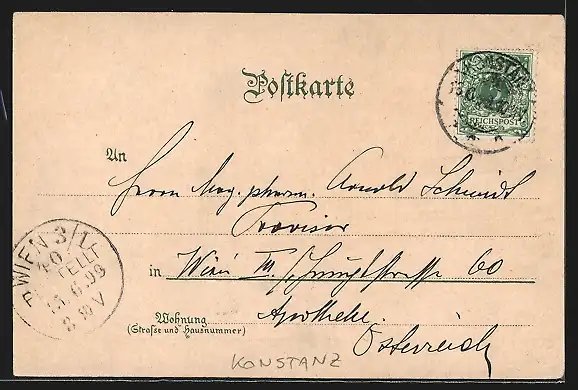 Postkarte
KONSTANZ
REICHSPOST
An
Herrn Mag. pharm. Arnold Schmidt
Provisor
in Wien III, 60
Apotheke.
Wohnung
(Straße und Hausnummer)
Österreich
WIEN 3/1
8 V
KONSTANZ